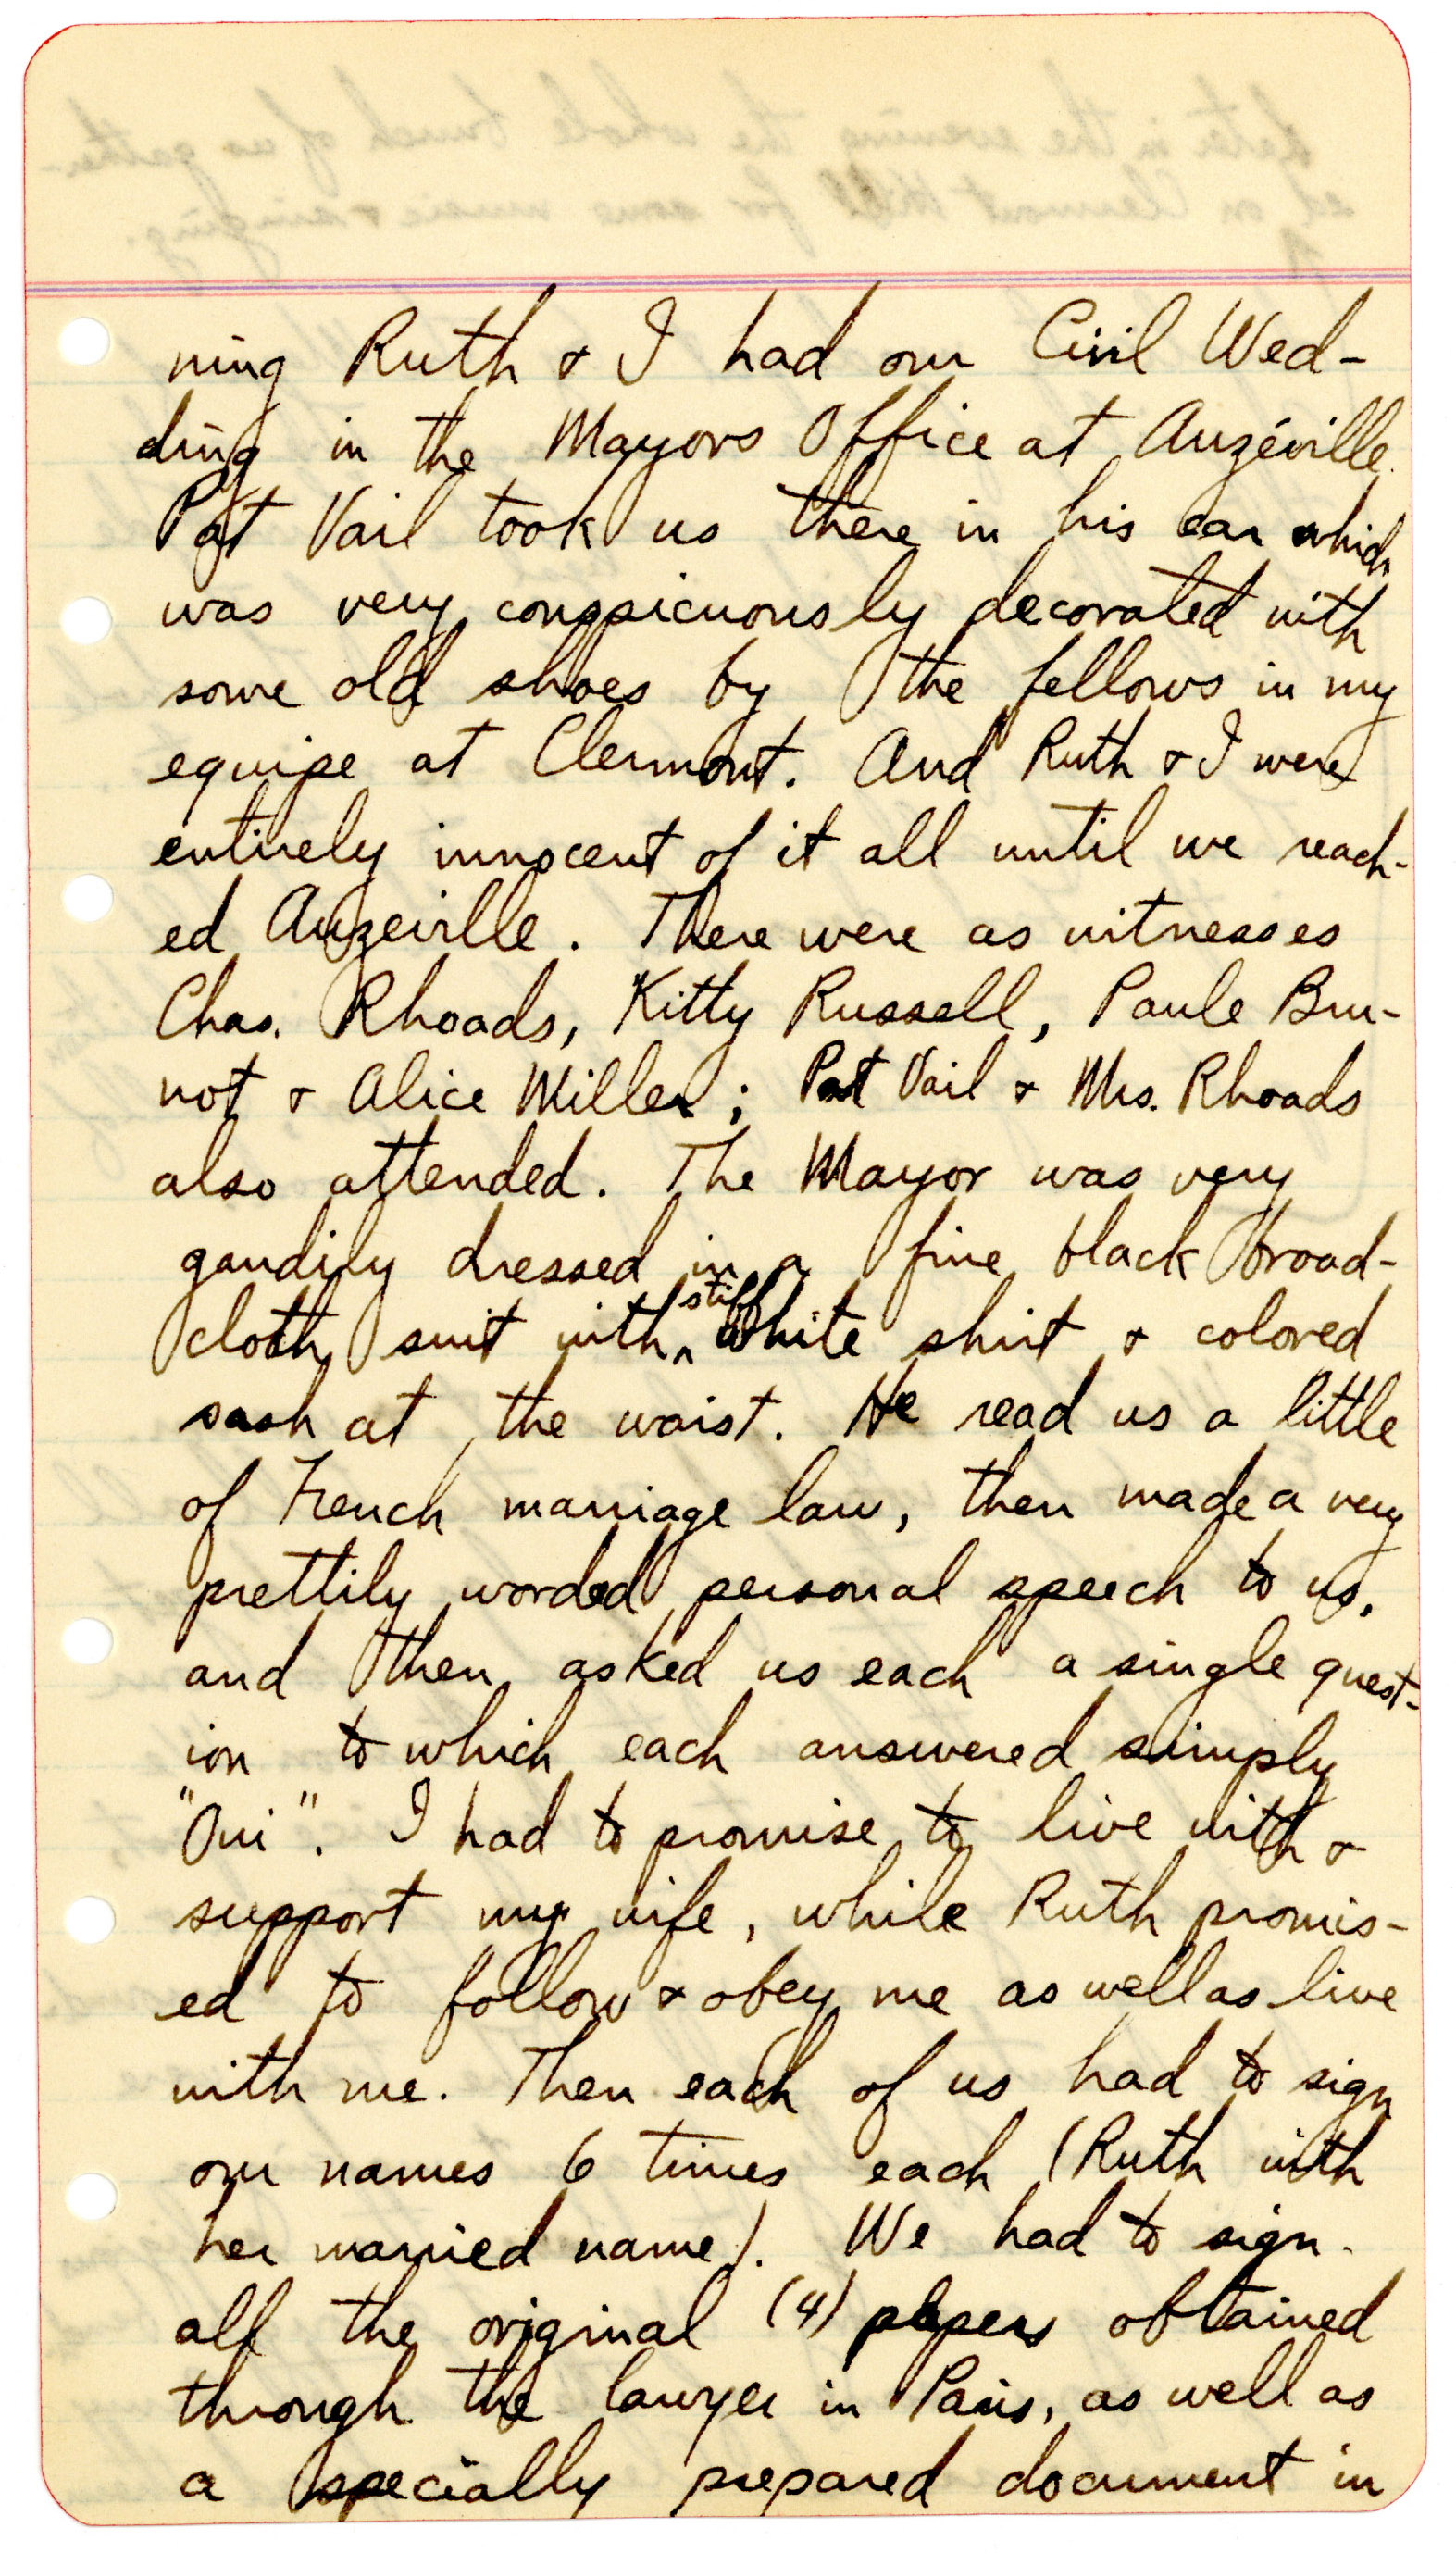 ning Ruth & I had our Civil Wed-
ding in the Mayors Office at Auzéville.
Pat Vail took us there in his car which
was very conspicuously decorated with
some old shoes by the fellows in my
equipe at Clermont. And Ruth & I were
entirely innocent of it all until we reach-
ed Auzeville. There were as witnesses
Chas. Rhoads, Kitty Russell, Paule Bru-
not & Alice Miller; Pat Vail & Mrs. Rhoads
also attended. The Mayor was very
gaudily dressed in a fine black broad-
cloth suit with ^stiff white shirt & colored
sash at the waist. He read us a little
of French marriage law, then made a very
prettily worded personal speech to us,
and then asked us each a single quest-
ion to which each answered simply
"Oui". I had to promise to live with &
support my wife, while Ruth promis-
ed to follow & obey me as well as live
with me. Then each of us had to sign
our names 6 times each (Ruth with
her married name). We had to sign
all the original (4) papers obtained
through the lawyer in Paris, as well as
a specially prepared document in